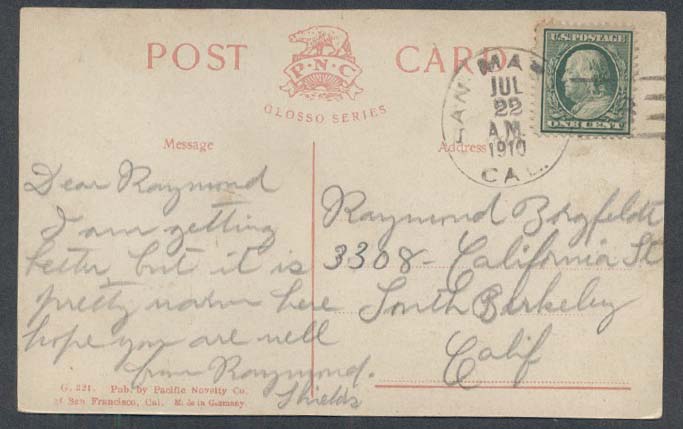 POST CARD
P·N·C
GLOSSO SERIES
U.S. POSTAGE
ONE CENT
SAN MA
JUL
22
A.M.
1910
CAL.
Message
Address
Dear Raymond
I am getting
better, but it is
pretty warm here
hope you are well
from Raymond.
Shields
Raymond Borgfeldt
3308 - California St
South Berkeley
Calif
G. 221. Pub. by Pacific Novelty Co.
of San Francisco, Cal. Made in Germany.